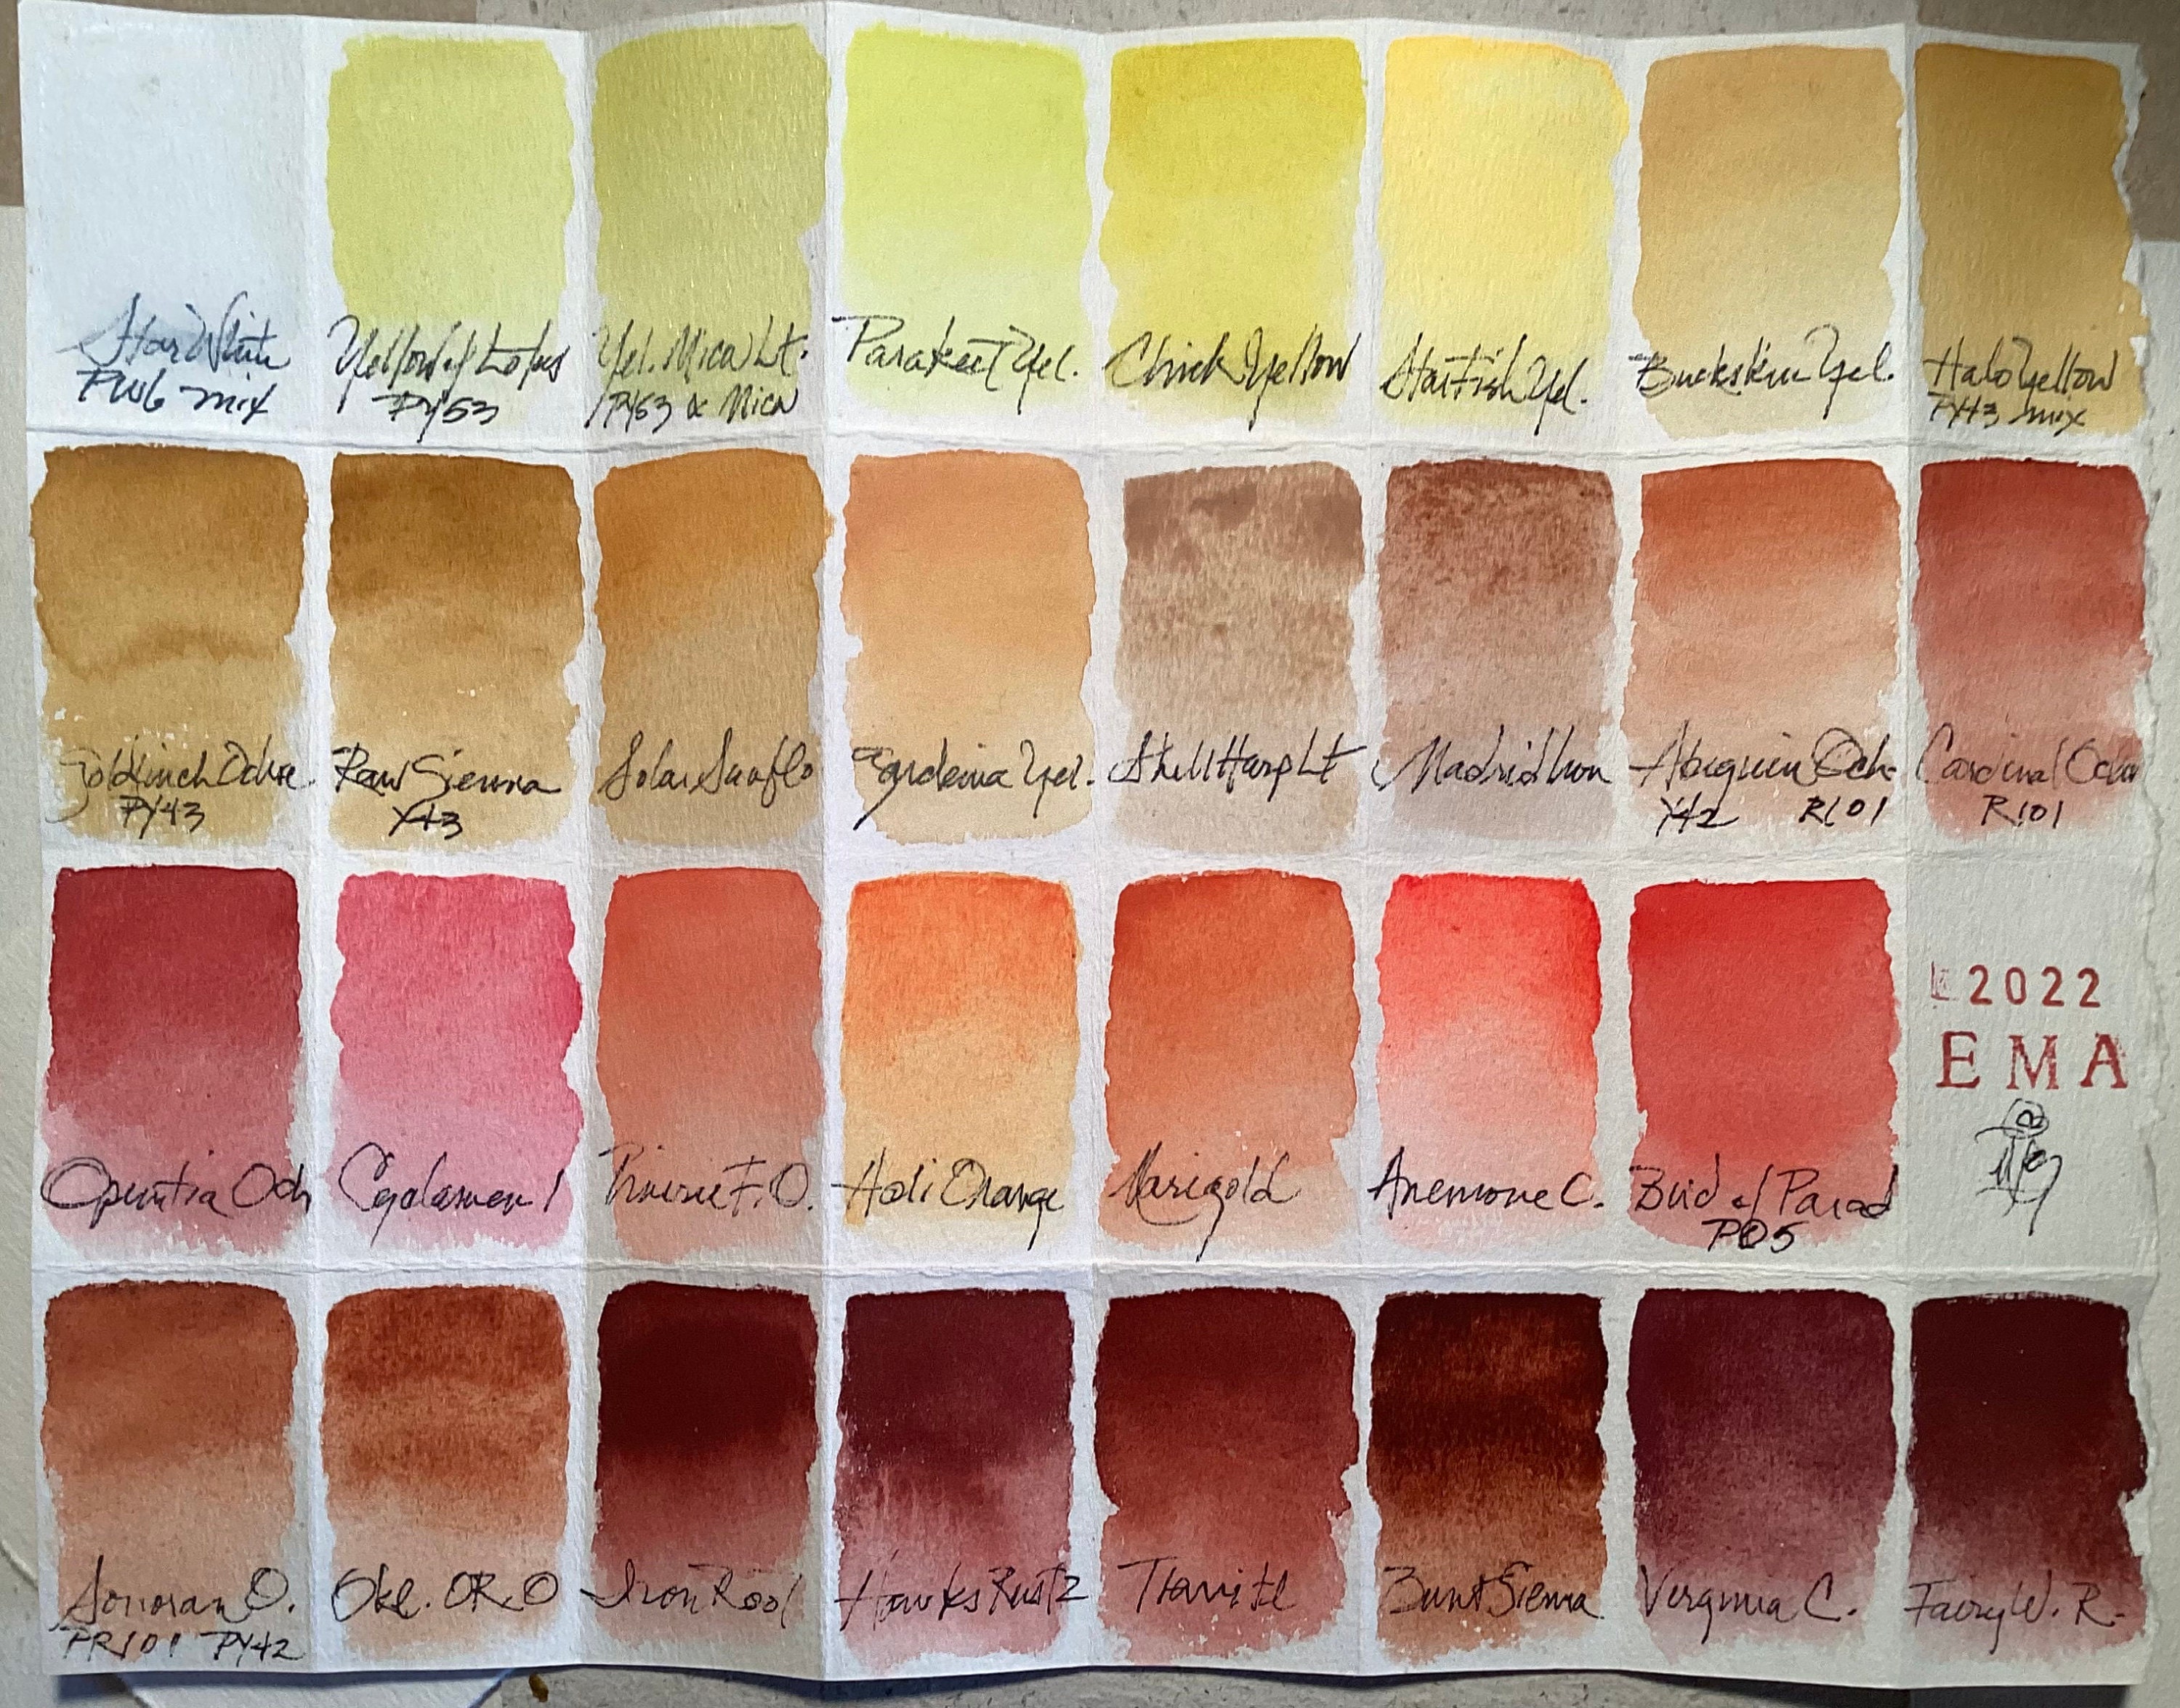 Star White
PW6 mix
Yellow of Lotus
PY53
Yel. Mica Lt.
PY53 & Mica
Parakeet Yel.
Chick Yellow
Starfish Yel.
Buckskin Yel.
Halo Yellow
PY43 mix
Goldfinch Ochre
PY43
Raw Sienna
Y43
Solar Sunflo
Gardenia Yel.
Shell Harp Lt
Madrid Iron
Abiquiu Och
Y42 R101
Cardinal Ochr
R101
Opuntia Och
F. O.
Holi Orange
Marigold
Anemone C.
Bird of Parad
PO5
2022
EMA
Sonoran O.
PR101 PY42
Okl. OR. O
Iron Rool
Hawks Rust 2
Burnt Sienna
Virginia C.
Fairy W. R.